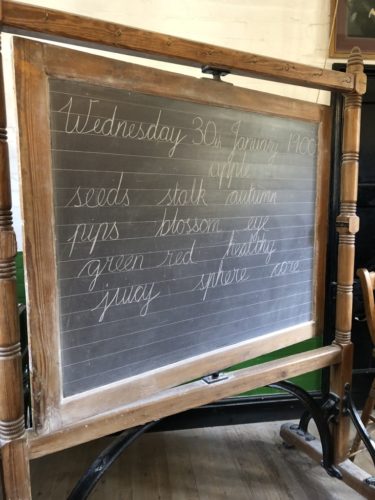 Wednesday 30th January 1900
apple
seeds stalk autumn
pips blossom eye
green red healthy
juicy sphere core